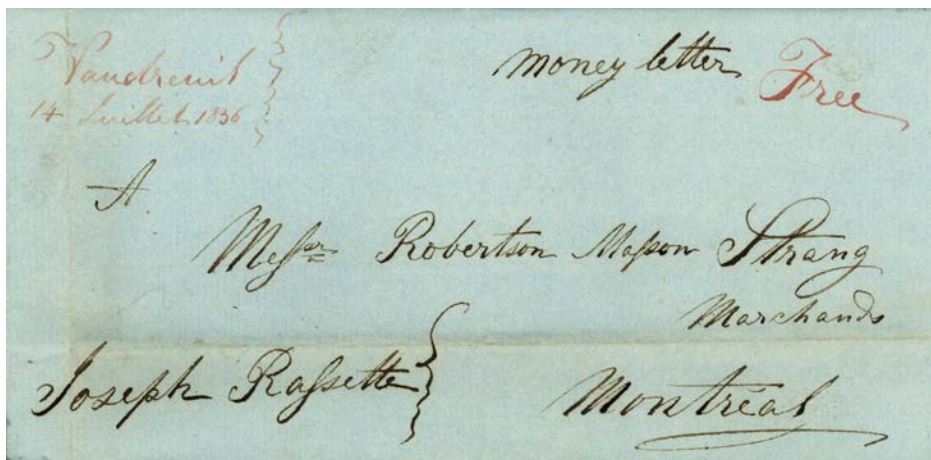 Vaudreuil
14 Juillet 1836
money letter Free
A
Messrs Robertson Masson Strang
Marchands
Joseph Rassette
Montréal